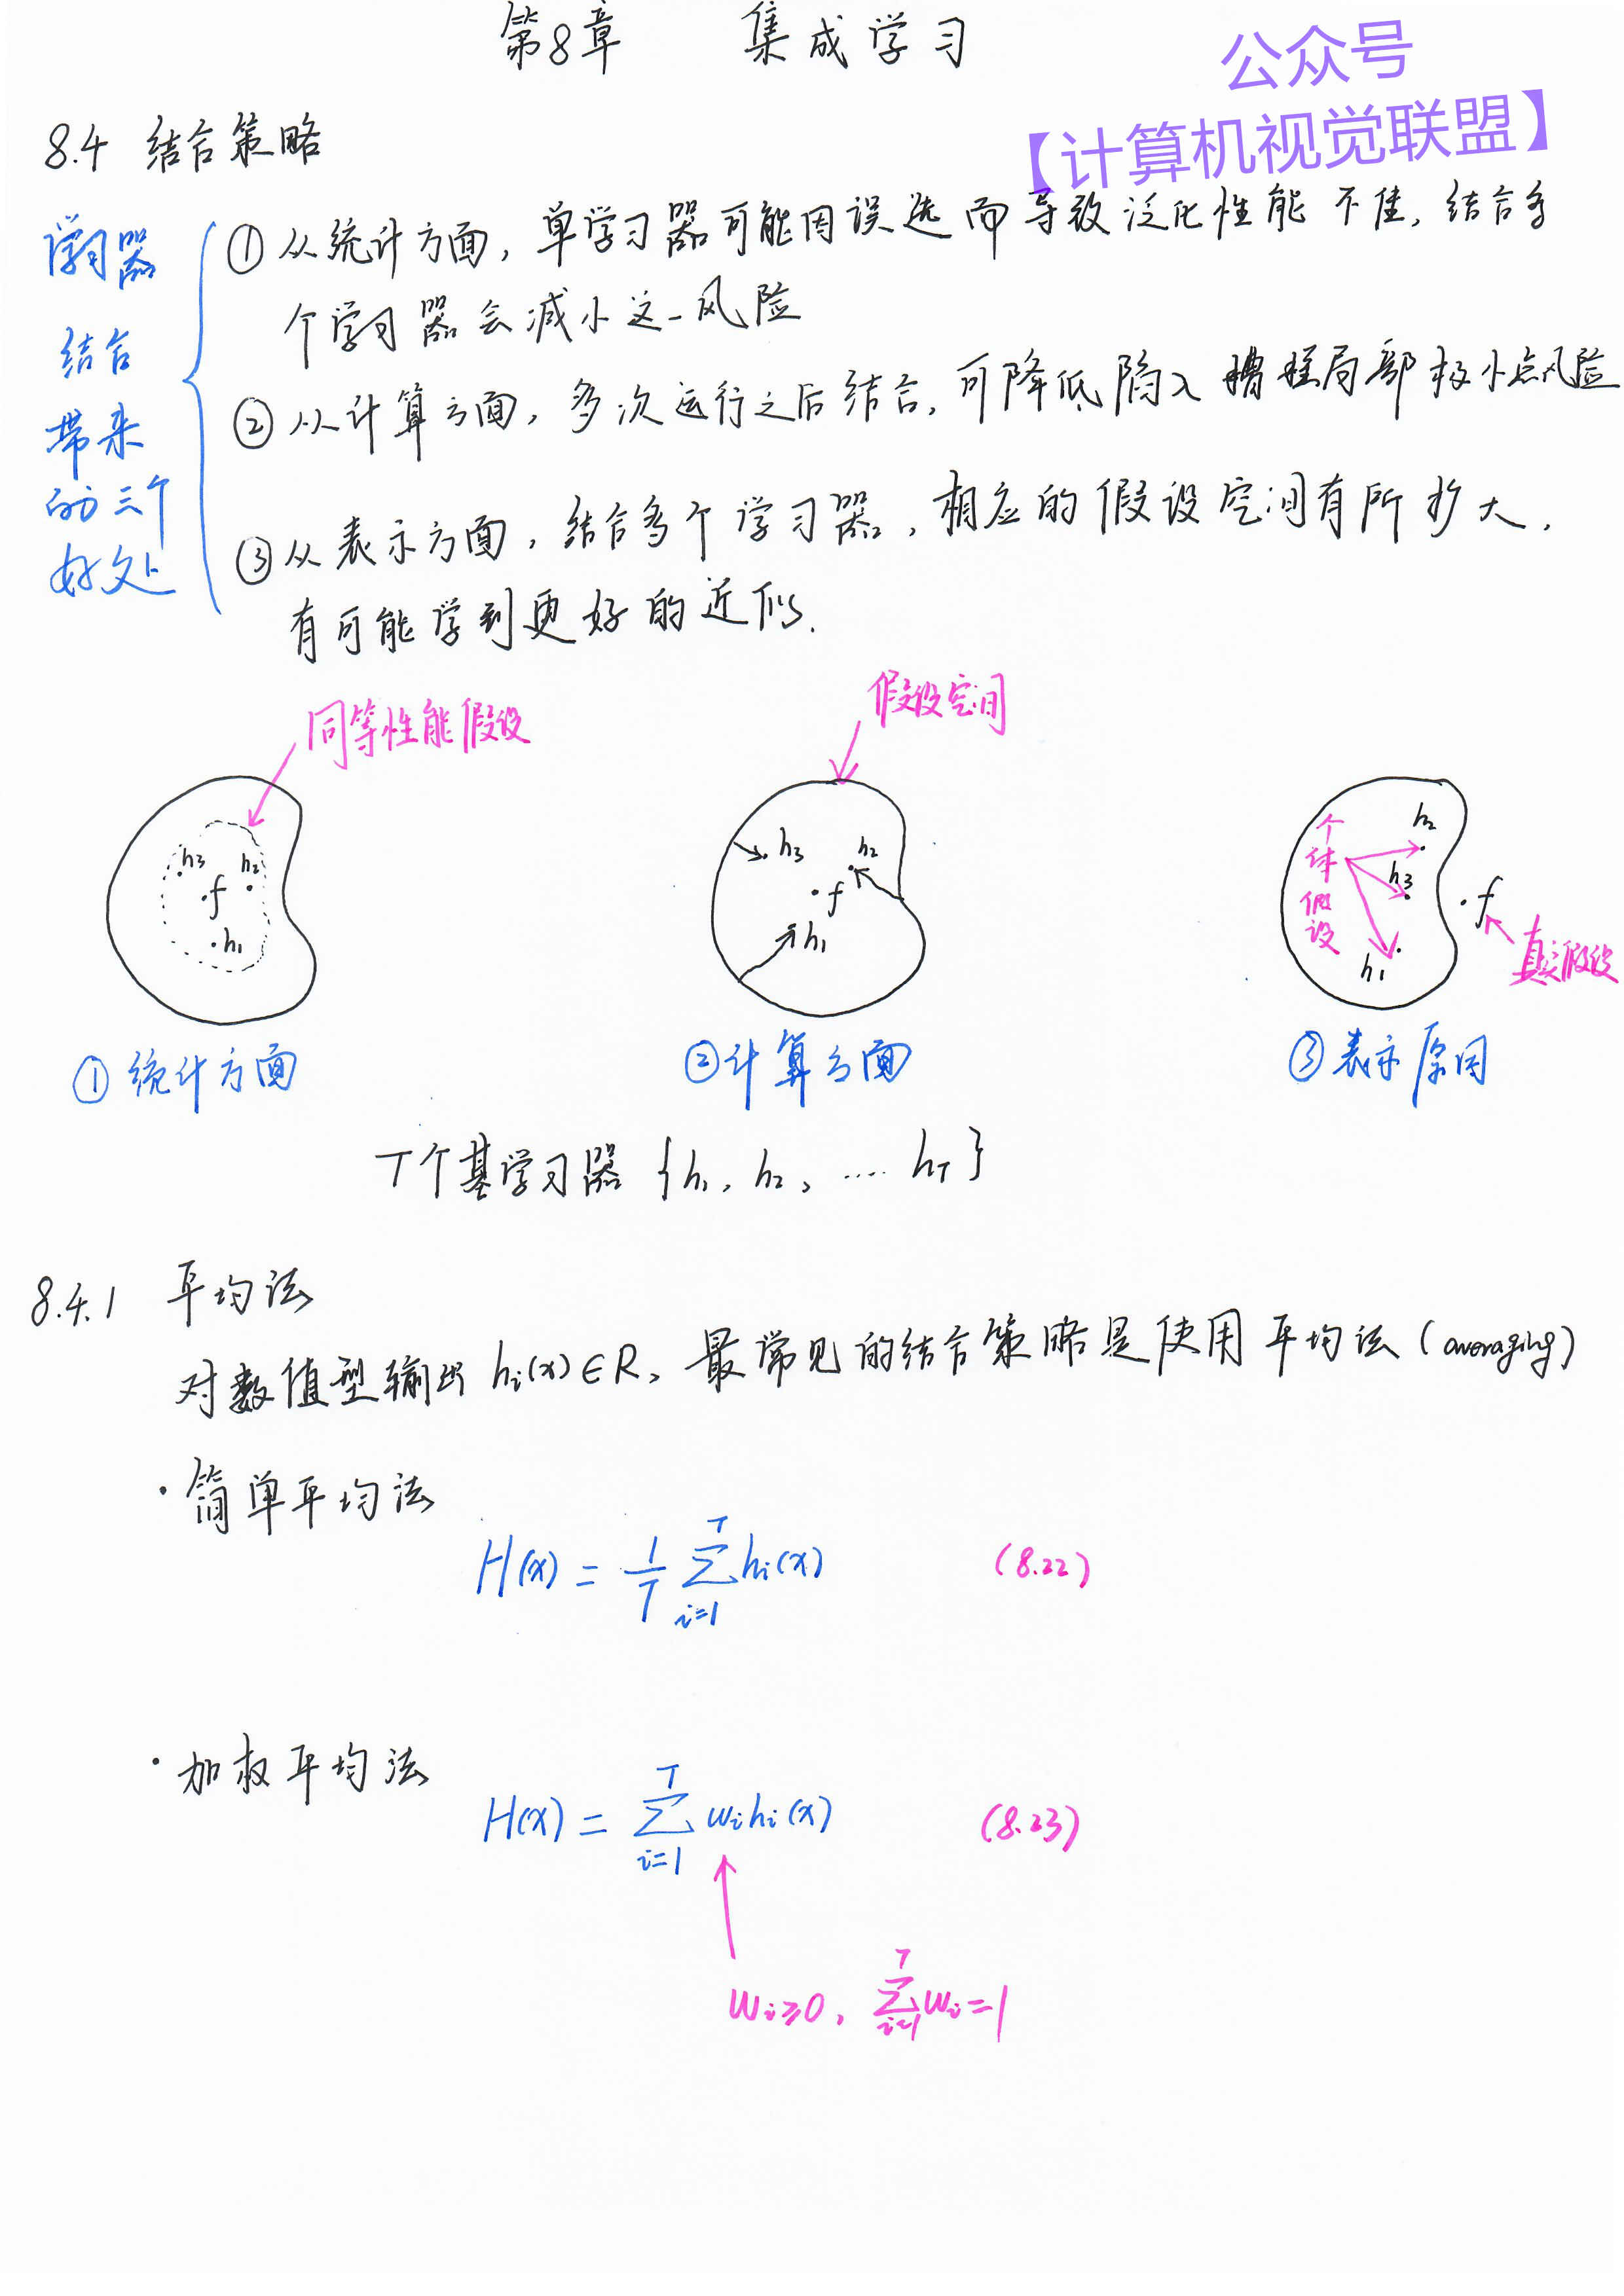 第8章 集成学习
公众号
【计算机视觉联盟】
8.4 结合策略
学习器
结合
带来
的三个
好处
① 从统计方面,单学习器可能因误选而导致泛化性能不佳,结合多
个学习器会减小这一风险
② 从计算方面,多次运行之后结合,可降低陷入糟糕局部极小点风险
③ 从表示方面,结合多个学习器,相应的假设空间有所扩大,
有可能学到更好的近似.
同等性能假设
假设空间
h₃ h₂
f
h₁
h₃ h₂
f
h₁
个体假设
h₂
h₃
h₁
f
真实假设
① 统计方面
② 计算方面
③ 表示原因
T个基学习器 {h₁, h₂, .... h_T}
8.4.1 平均法
对数值型输出 hᵢ(x)∈R, 最常见的结合策略是使用平均法 (averaging)
· 简单平均法
H(x) = 1/T ∑_{i=1}^{T} hᵢ(x) (8.22)
· 加权平均法
H(x) = ∑_{i=1}^{T} wᵢhᵢ(x) (8.23)
wᵢ≥0, ∑_{i=1}^{T} wᵢ=1